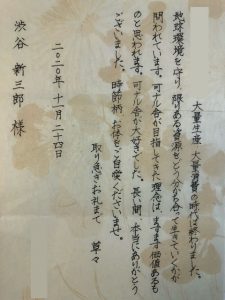 大量生産、大量消費の時代は終わりました。
地球環境を守り、限りある資源をどう分かち合って生きていくかが
問われています。可ナル舎が目指してきた理念は、ますます価値あるも
のと思われます。可ナル舎が大好きでした。長い間、本当にありがとう
ございました。時節柄、お体をご自愛くださいませ。
取り急ぎお礼まで　草々
二〇二〇年　十一月　二十四日
渋谷　新三郎　様